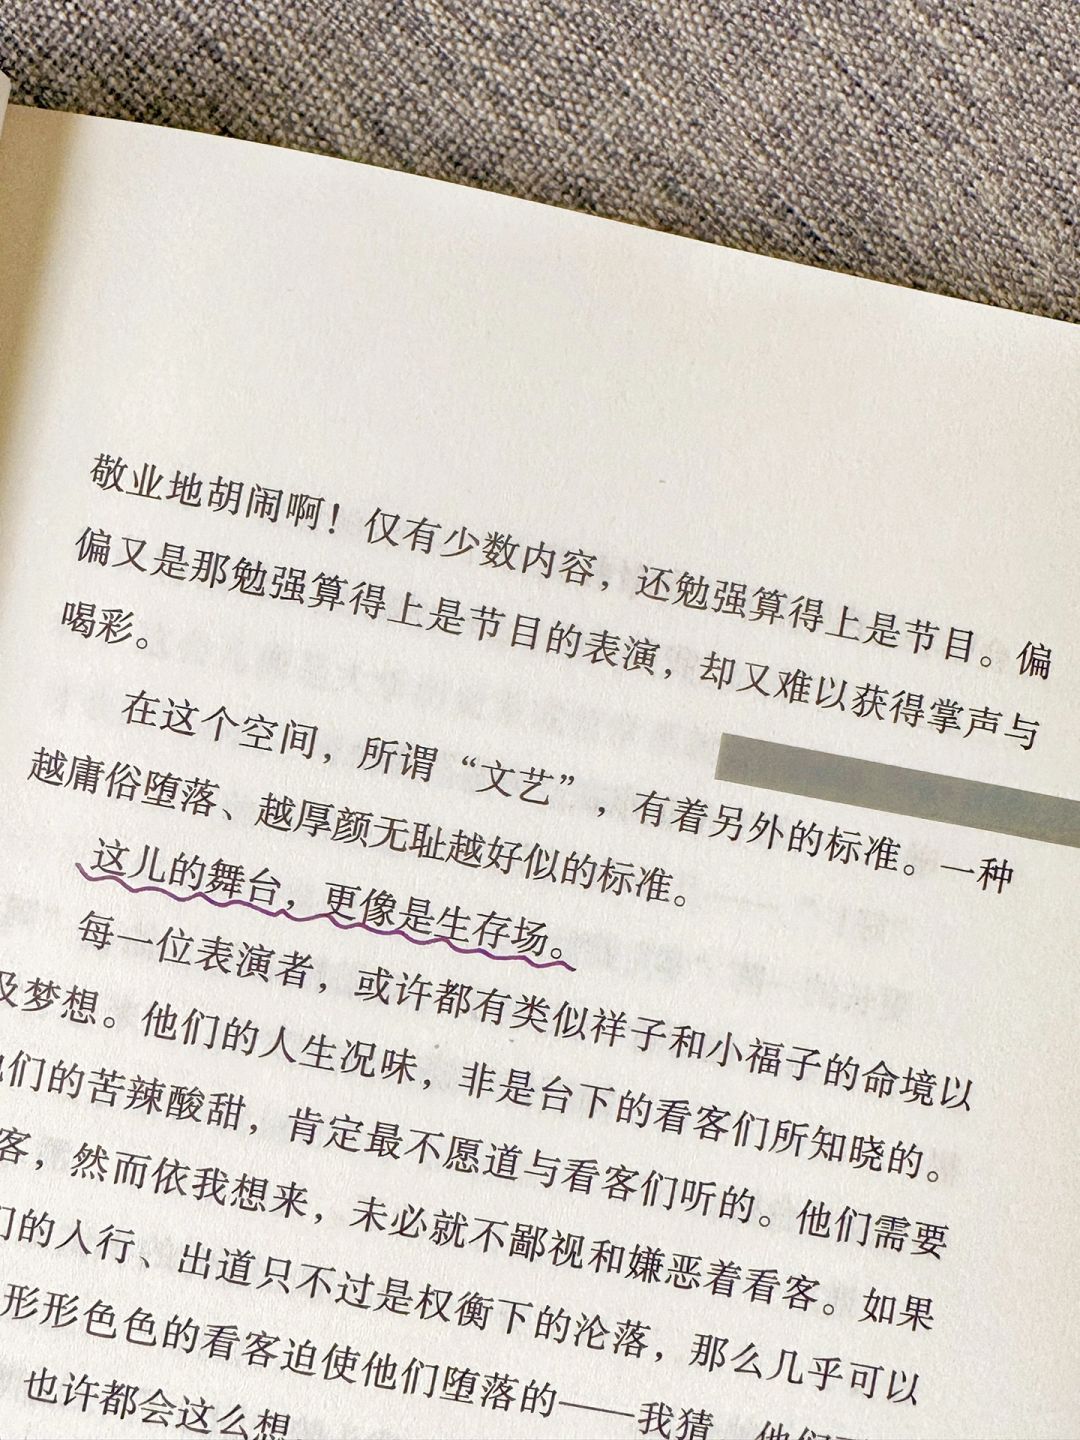 敬业地胡闹啊！仅有少数内容，还勉强算得上是节目。偏
偏又是那勉强算得上是节目的表演，却又难以获得掌声与
喝彩。
在这个空间，所谓“文艺”，有着另外的标准。一种
越庸俗堕落、越厚颜无耻越好似的标准。
这儿的舞台，更像是生存场。
每一位表演者，或许都有类似祥子和小福子的命境以
及梦想。他们的人生况味，非是台下的看客们所知晓的。
他们的苦辣酸甜，肯定最不愿道与看客们听的。他们需要
客，然而依我想来，未必就不鄙视和嫌恶着看客。如果
们的人行、出道只不过是权衡下的沦落，那么几乎可以
形形色色的看客迫使他们堕落的——我猜，他们
也许都会这么想